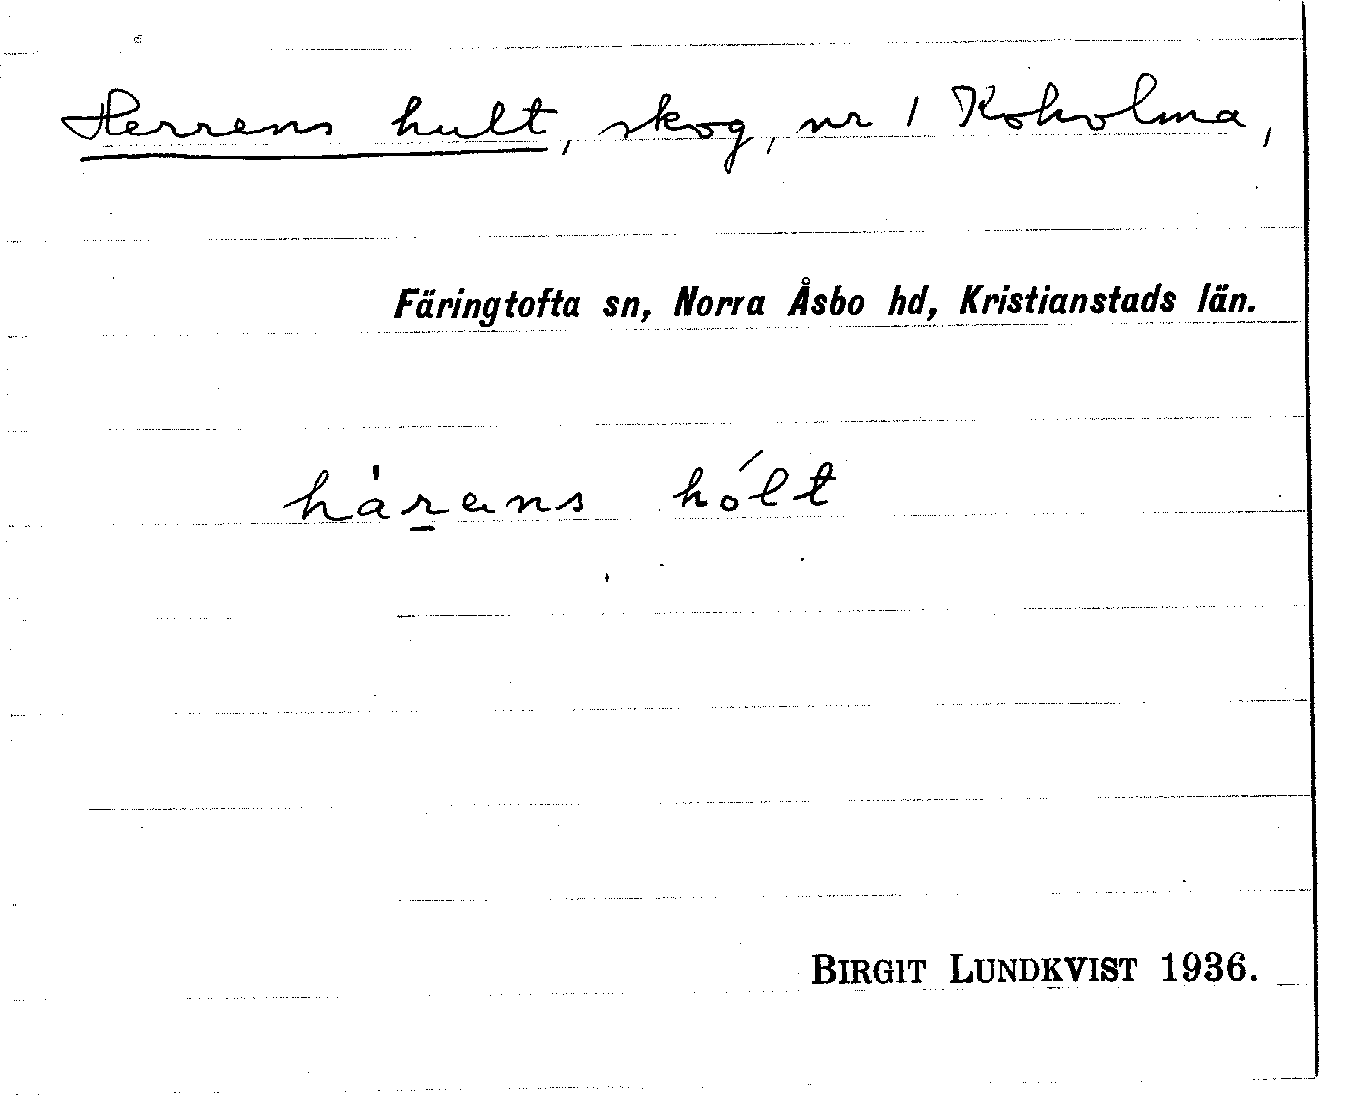 Herrens hult, skog, nr 1 Koholma,
Färingtofta sn, Norra Åsbo hd, Kristianstads län.
hàr̠ens hólt
BIRGIT LUNDKVIST 1936.